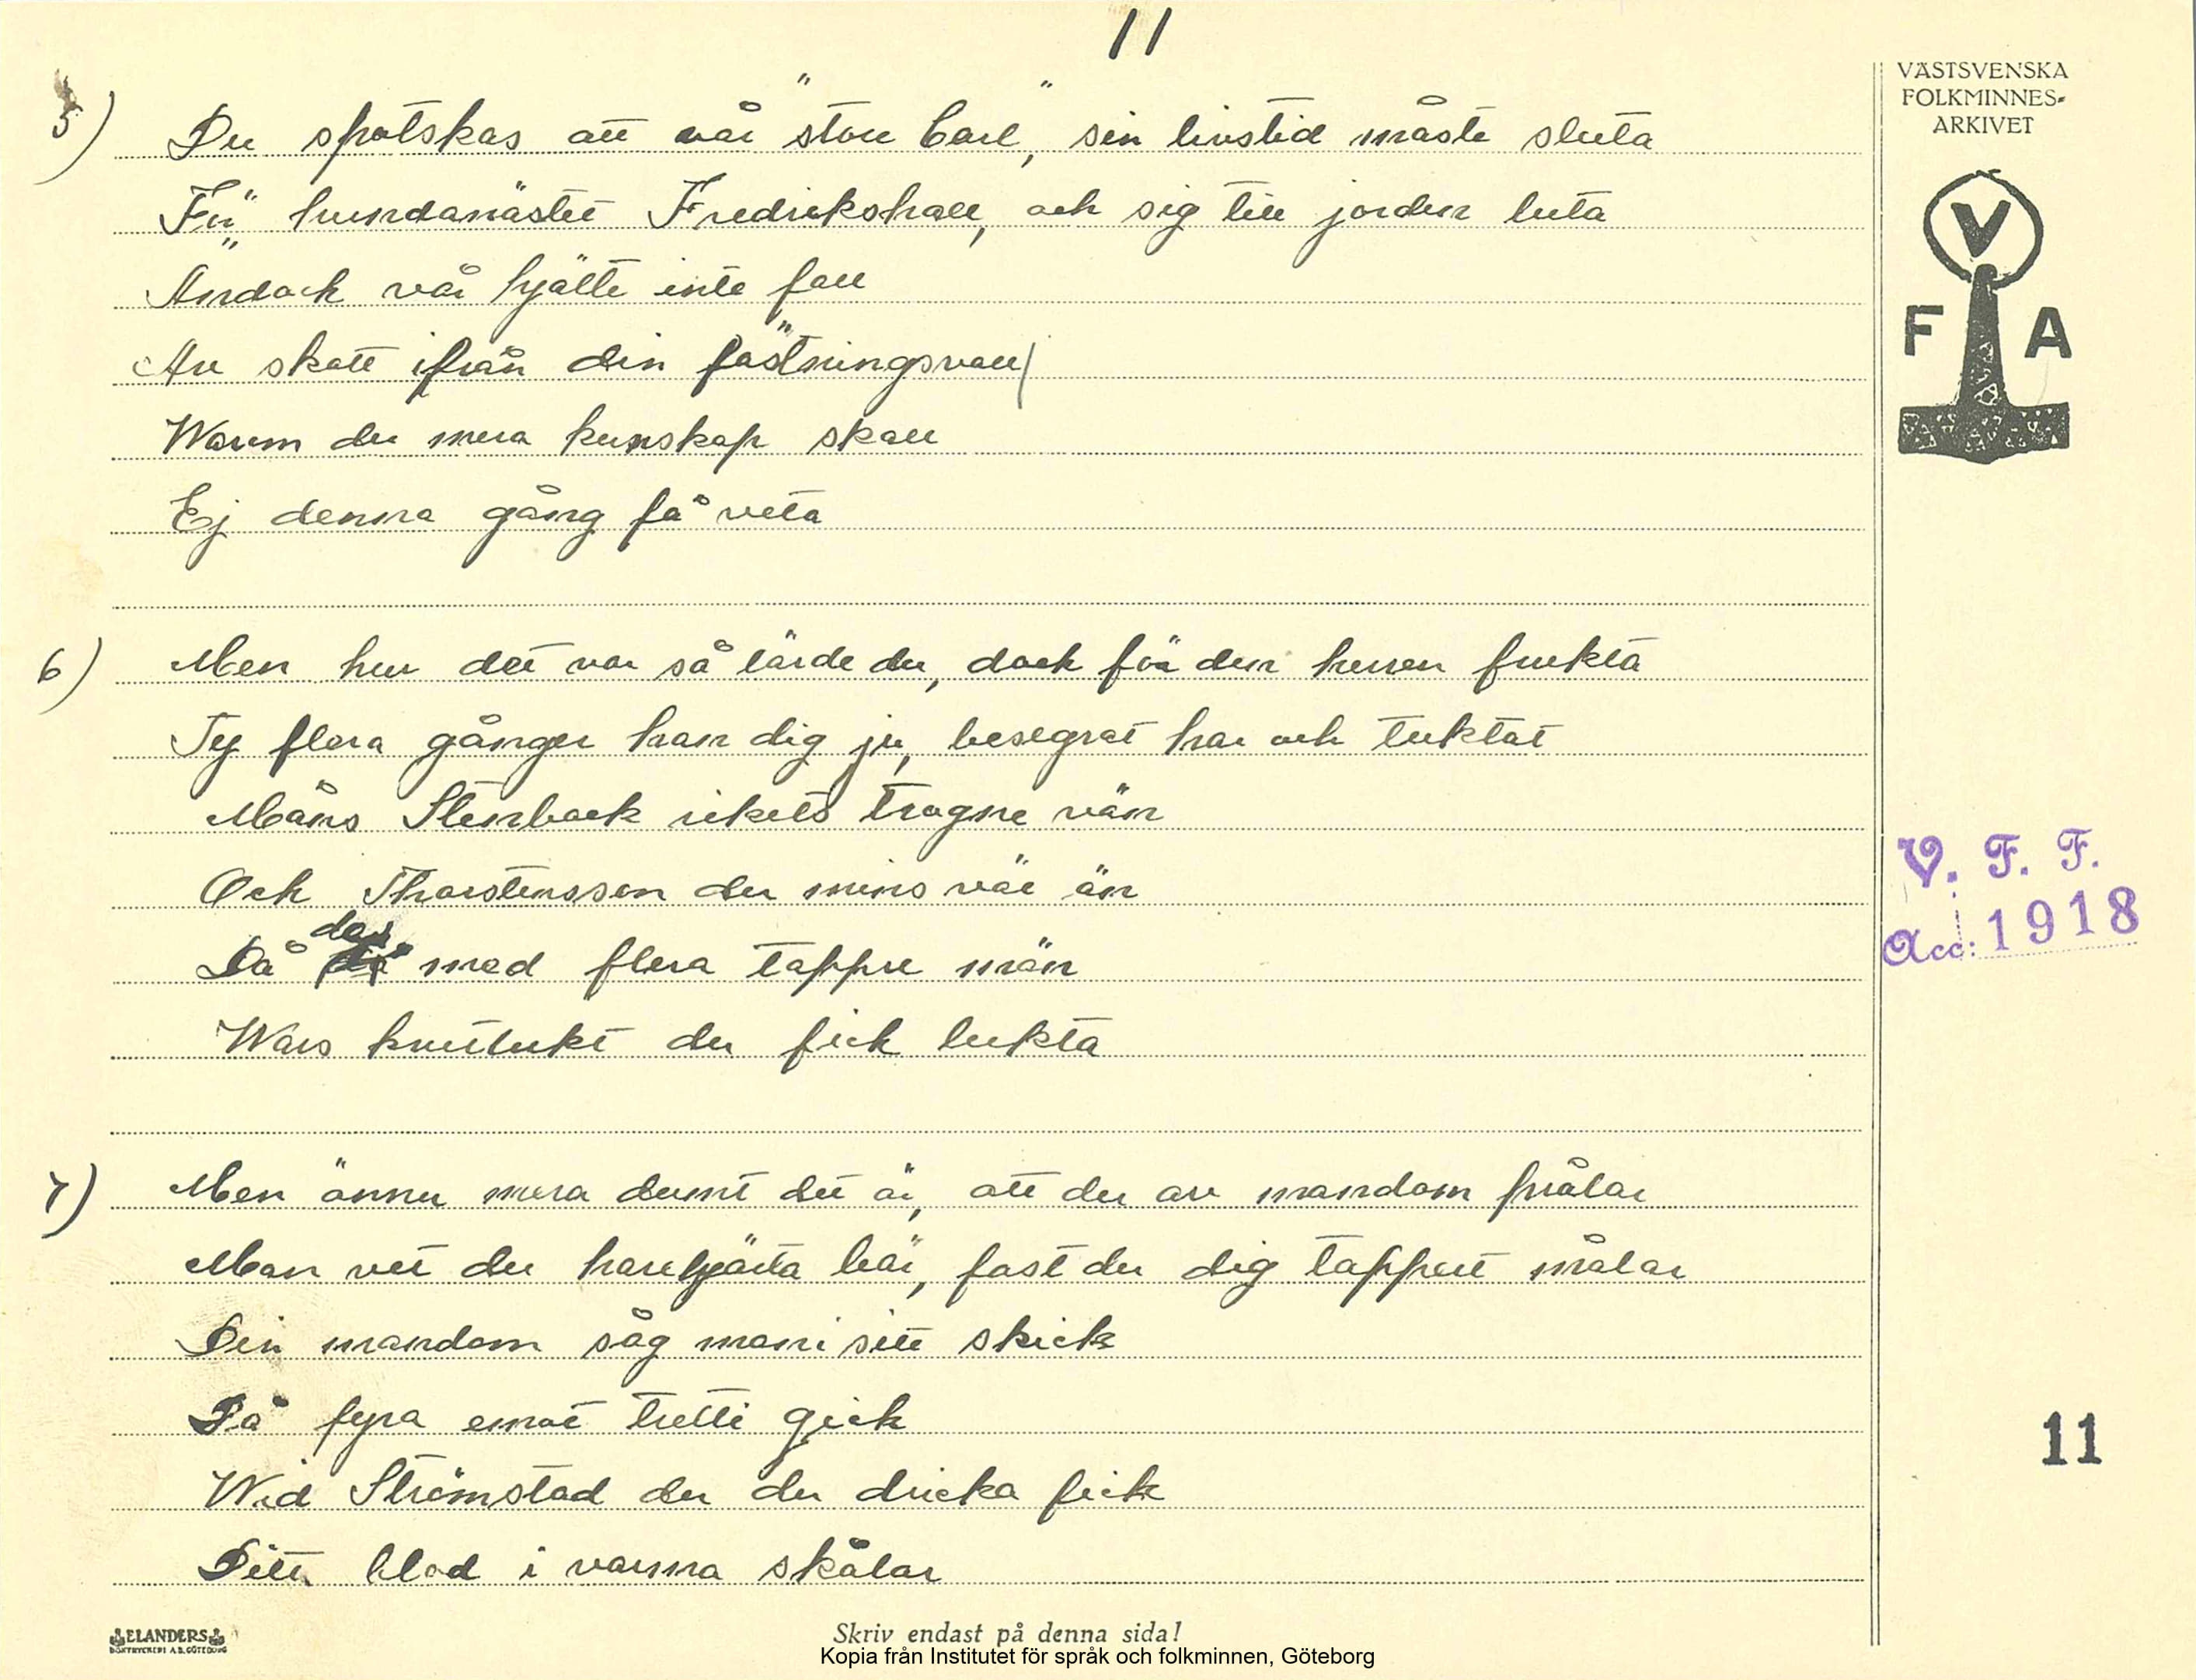 11
VÄSTSVENSKA
FOLKMINNES-
ARKIVET
V
F A
5) Du spotskas att vår "store Carl", sin livstid måste sluta
För "hundanästet Fredrikshall, och sig till jorden luta
Ändock vår hjälte inte föll
Av skott ifrån din fästningsvall
Warom du mera kunskap skall
Ej denna gång få veta
6) Men hur det var så lärde du, dock för den herren frukta
Ty flera gånger han dig ju, besegrat har och tuktat
Måns Stenbock rikets trogne vän
Och Thorstensson du mins väl än
då
Då med flera tappre män
Wars krutlukt du fick lukta
7) Men ännu mera dumt det är, att du av mandom pråler
Man vet du harehjärta bär, fast du dig tappert målar
Din mandom såg man i sitt skick
Då fyra emot tretti gick
Wid Strömstad der du dricka fick
Ditt blod i varma skålar
V. F. F.
Acc: 1918
11
ELANDERS
BOKTRYCKERI A.B. GÖTEBORG
Skriv endast på denna sida!
Kopia från Institutet för språk och folkminnen, Göteborg